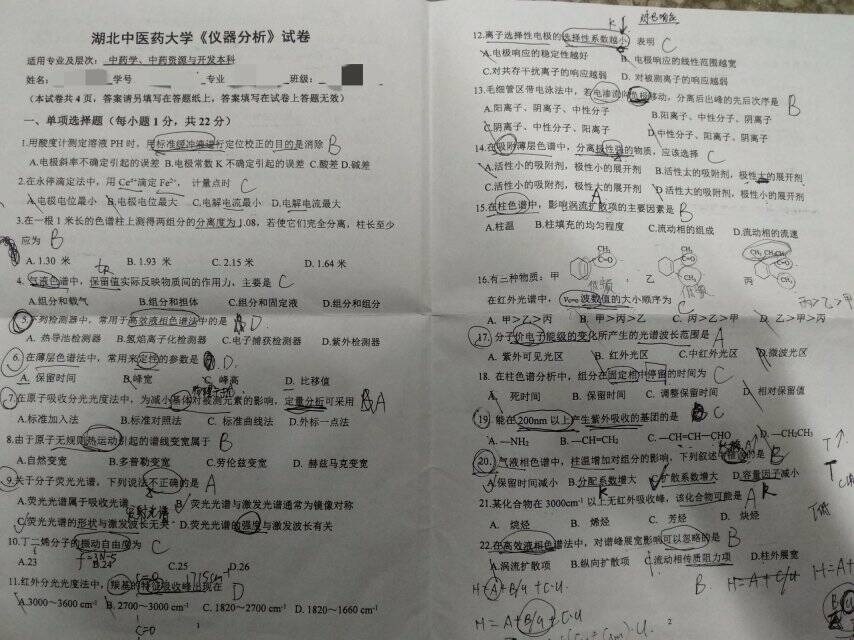 湖北中医药大学《仪器分析》试卷
适用专业及层次：中药学、中药资源与开发本科
姓名： 学号 专业 班级：
（本试卷共 4 页，答案请另填写在答题纸上，答案填写在试卷上答题无效）
一、单项选择题（每小题 1 分，共 22 分）
1.用酸度计测定溶液 PH 时，用标准缓冲液进行定位校正的目的是消除 B
A.电极斜率不确定引起的误差 B.电极常数 K 不确定引起的误差 C.酸差 D.碱差
2.在永停滴定法中，用 Ce⁴⁺滴定 Fe²⁺， 计量点时 C
A.电极电位最小 B.电极电位最大 C.电解电流最小 D.电解电流最大
3.在一根 1 米长的色谱柱上测得两组分的分离度为 1.08，若使它们完全分离，柱长至少
应为 B
A. 1.30 米 B. 1.93 米 C. 2.15 米 D. 1.64 米
tR
4. 气液色谱中，保留值实际反映物质间的作用力，主要是 C
A.组分和载气 B.组分和担体 C.组分和固定液 D.组分和组分
5. 下列检测器中，常用于高效液相色谱法中的是 D.
A. 热导池检测器 B.氢焰离子化检测器 C.电子捕获检测器 D.紫外检测器
6. 在薄层色谱法中，常用来定性的参数是 D.
A. 保留时间 B.峰宽 C. 峰高 D. 比移值
7.在原子吸收分光光度法中，为减小基体对被测元素的影响，定量分析可采用 A
A.标准加入法 B.标准对照法 C. 标准曲线法 D.外标一点法
8.由于原子无规则热运动引起的谱线变宽属于 B
A.自然变宽 B.多普勒变宽 C.劳伦兹变宽 D. 赫兹马克变宽
9.关于分子荧光光谱，下列说法不正确的是 A
A.荧光光谱属于吸收光谱 B. 荧光光谱与激发光谱通常为镜像对称
C.荧光光谱的形状与激发波长无关 D.荧光光谱的强度与激发波长有关
10.丁二烯分子的振动自由度为 C
A.23 B.24 C.25 D.26
11.红外分光光度法中，羰基的特征吸收峰出现在 D
A.3000～3600 cm⁻¹ B. 2700～3000 cm⁻¹ C. 1820～2700 cm⁻¹ D. 1820～1660 cm⁻¹
C=O
12.离子选择性电极的选择性系数越小，表明 C
A.电极响应的稳定性越好 B. 电极响应的线性范围越宽
C.对共存干扰离子的响应越弱 D. 对被测离子的响应越弱
13.毛细管区带电泳法中，若电渗流向负极移动，分离后出峰的先后次序是 B
A.阳离子、阴离子、中性分子 B.阳离子、中性分子、阴离子
C.阴离子、中性分子、阳离子 D.中性分子、阳离子、阴离子
14.在吸附薄层色谱中，分离极性强的物质，应该选择 C
A.活性小的吸附剂，极性小的展开剂 B.活性大的吸附剂，极性大的展开剂
C.活性小的吸附剂，极性大的展开剂 D.活性大的吸附剂，极性小的展开剂
15.在柱色谱中，影响涡流扩散项的主要因素是 B
A.柱温 B.柱填充的均匀程度 C.流动相的组成 D.流动相的流速
16.有三种物质：甲 乙 丙
在红外光谱中，νC=O 波数值的大小顺序为 C
A. 甲＞乙＞丙 B. 甲＞丙＞乙 C. 丙＞乙＞甲 D. 乙＞甲＞丙
丙＞乙＞甲
17. 分子价电子能级的变化所产生的光谱波长范围是 A
A. 紫外可见光区 B. 红外光区 C.中红外光区 D.微波光区
18. 在柱色谱分析中，组分在固定相中停留的时间为 C
A. 死时间 B. 保留时间 C. 调整保留时间 D. 相对保留值
19. 能在 200nm 以上产生紫外吸收的基团的是 C
A. —NH₂ B. —CH=CH₂ C. —CH=CH—CHO D. —CH₂CH₃
20. 气液相色谱中，柱温增加对组分的影响，下列叙述中错误的是 B
A.保留时间减小 B.分配系数增大 C.扩散系数增大 D.容量因子减小
21.某化合物在 3000cm⁻¹ 以上无红外吸收峰，该化合物可能是 A
A. 烷烃 B. 烯烃 C. 芳烃 D. 炔烃
22.在高效液相色谱法中，对谱峰展宽影响可以忽略的是 B
A.涡流扩散项 B.纵向扩散项 C.流动相传质阻力项 D.柱外展宽
H=A+B/u+C·u
B. H=A+C/u
H=A+B/u+C·u